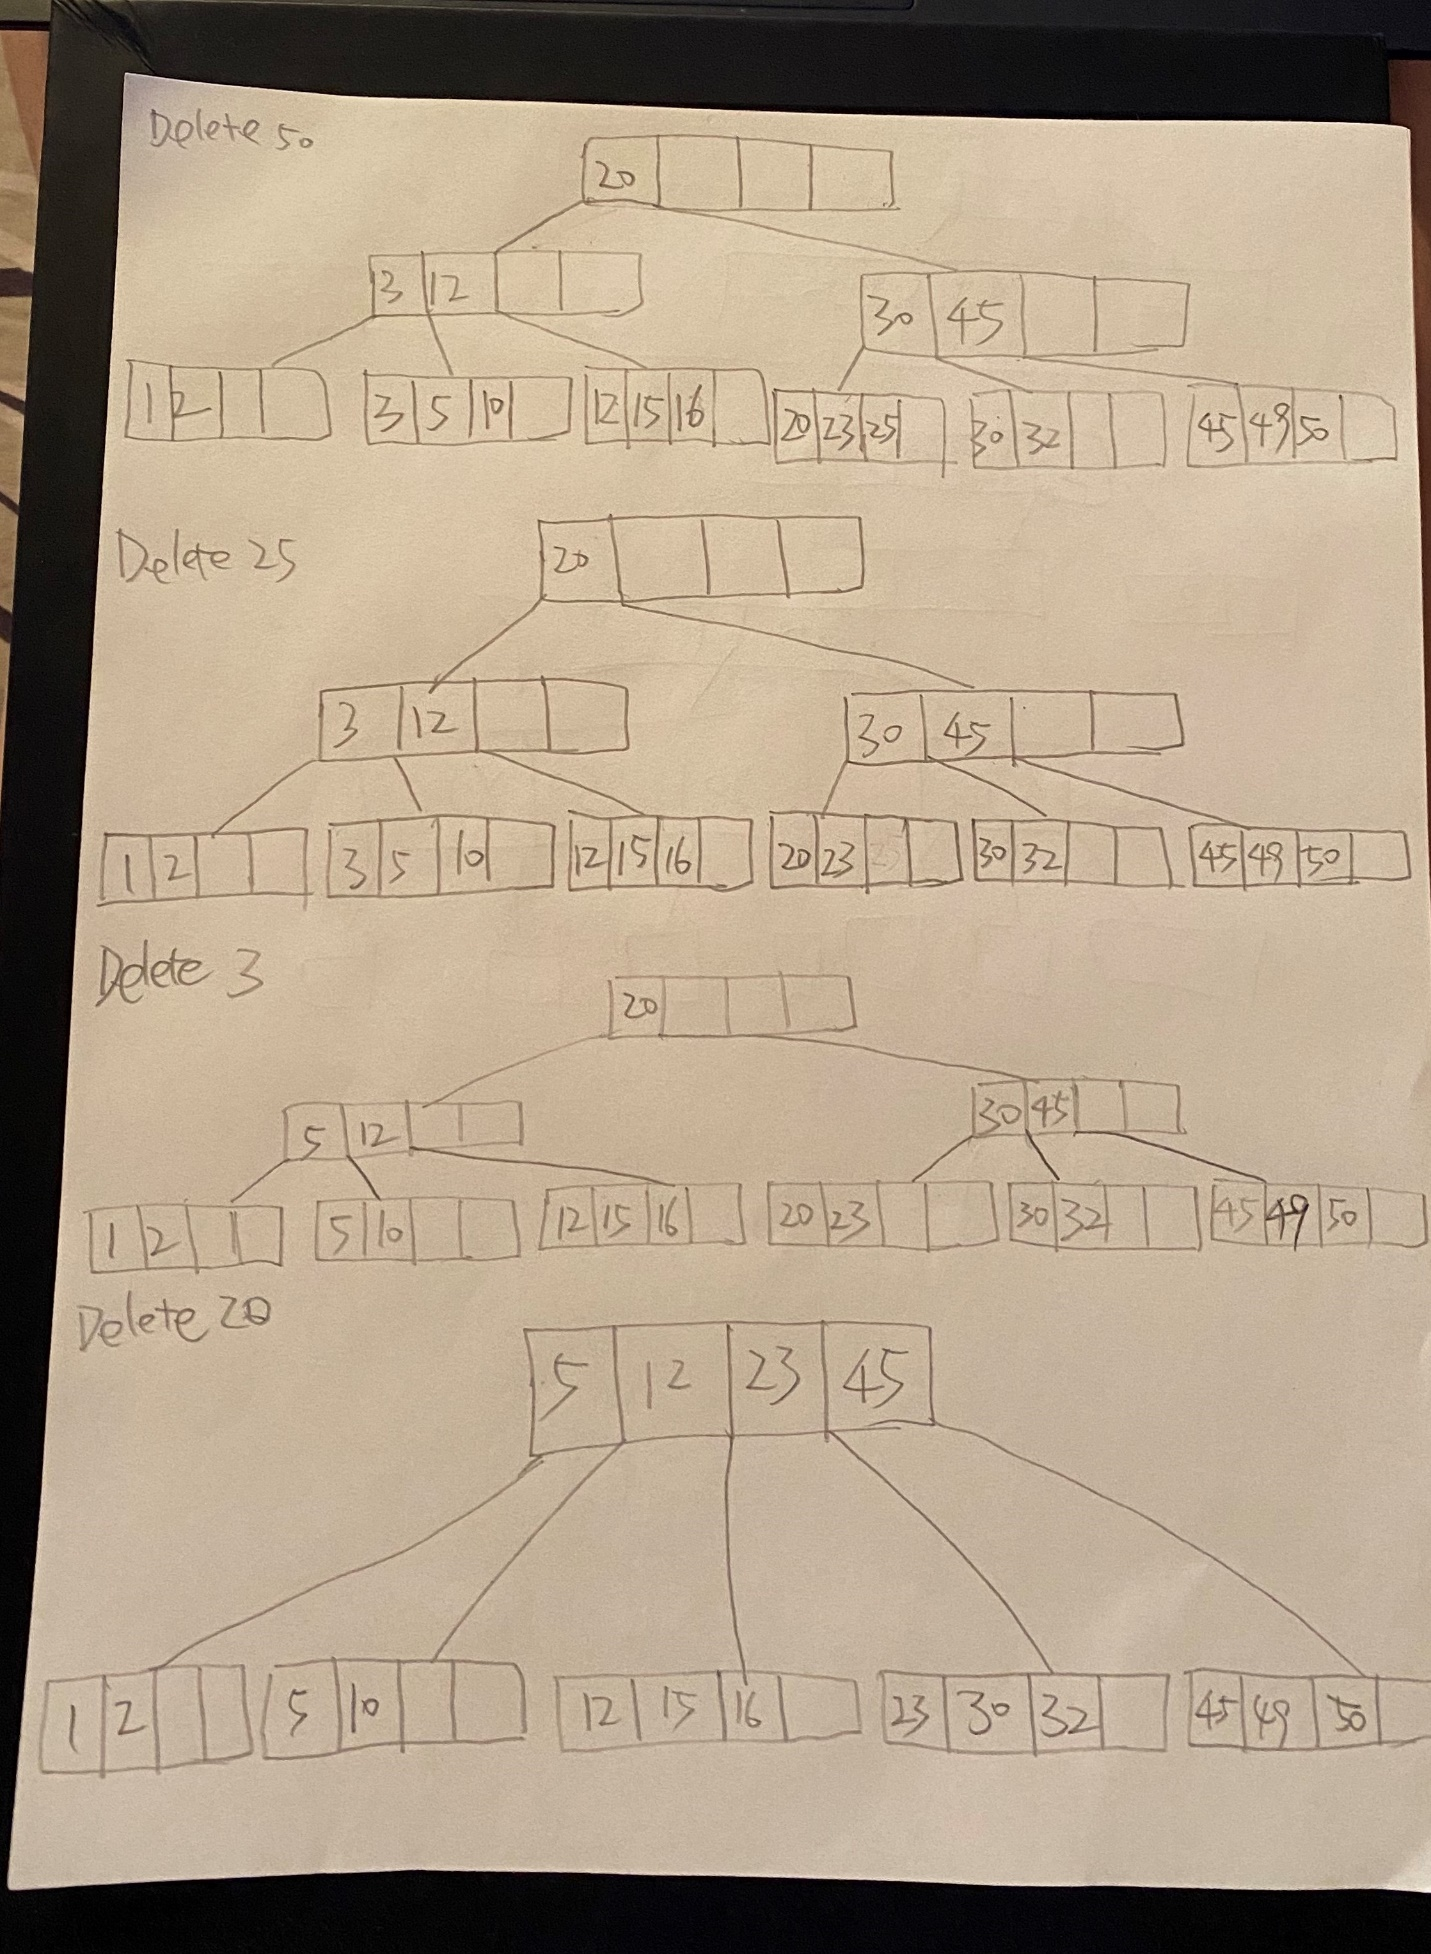 Delete 50
20
3 12
30 45
1 2
3 5 10
12 15 16
20 23 25
30 32
45 49 50
Delete 25
20
3 12
30 45
1 2
3 5 10
12 15 16
20 23
30 32
45 49 50
Delete 3
20
5 12
30 45
1 2
5 10
12 15 16
20 23
30 32
45 49 50
Delete 20
5 12 23 45
1 2
5 10
12 15 16
23 30 32
45 49 50